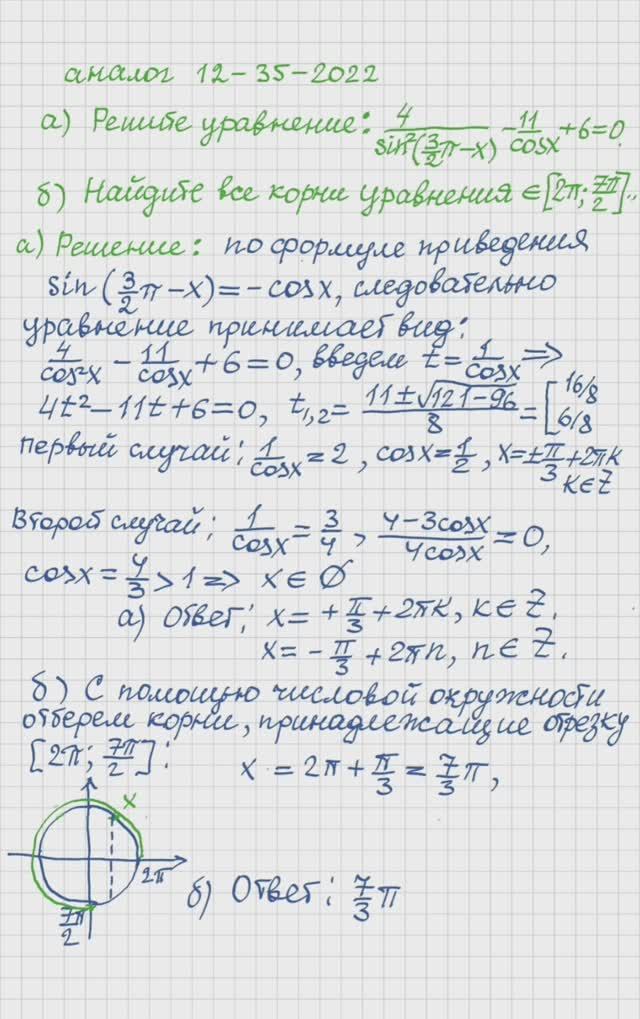 аналог 12-35-2022
а) Решите уравнение: 4/sin²(3/2π-x) - 11/cosx + 6 = 0.
б) Найдите все корни уравнения ∈ [2π; 7π/2]..
а) Решение: по формуле приведения
sin(3/2π-x) = -cosx, следовательно
уравнение принимает вид:
4/cos²x - 11/cosx + 6 = 0, введем t = 1/cosx ⇒
4t² - 11t + 6 = 0, t₁,₂ = (11±√(121-96))/8 = [16/8 6/8
первый случай: 1/cosx = 2, cosx = 1/2, x = ±π/3 + 2πk
k∈Z
Второй случай: 1/cosx = 3/4, (4-3cosx)/(4cosx) = 0,
cosx = 4/3 > 1 ⇒ x ∈ Ø
а) Ответ: x = +π/3 + 2πk, k ∈ Z.
x = -π/3 + 2πn, n ∈ Z.
б) С помощью числовой окружности
отберем корни, принадлежащие отрезку
[2π; 7π/2]: x = 2π + π/3 = 7/3π,
x
2π
7π/2
б) Ответ: 7/3π